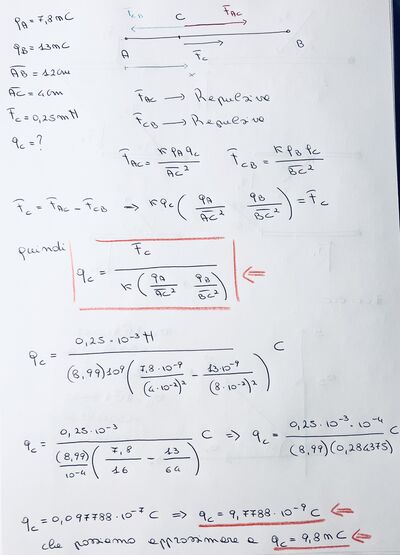 qA = 7,8 mC
qB = 13 mC
AB = 12 cm
AC = 4 cm
Fc = 0,25 mN
qc = ?
F_CB C F_AC
A F_c B
x
F_AC → Repulsive
F_CB → Repulsive
F_AC = K qA qc / AC² F_CB = K qB qc / BC²
F_c = F_AC - F_CB → K qc ( qA / AC² qB / BC² ) = F_c
quindi
qc = F_c / K ( qA / AC² qB / BC² ) ⇐
qc = 0,25 · 10⁻³ N / (8,99) 10⁹ ( 7,8 · 10⁻⁹ / (4 · 10⁻²)² - 13 · 10⁻⁹ / (8 · 10⁻²)² ) C
qc = 0,25 · 10⁻³ / (8,99) / 10⁻⁴ ( 7,8 / 16 - 13 / 64 ) C ⇒ qc = 0,25 · 10⁻³ · 10⁻⁴ / (8,99) (0,284375) C
qc = 0,097788 · 10⁻⁷ C ⇒ qc = 9,7788 · 10⁻⁹ C ⇐
che possiamo approssimare a qc = 9,8 mC ⇐